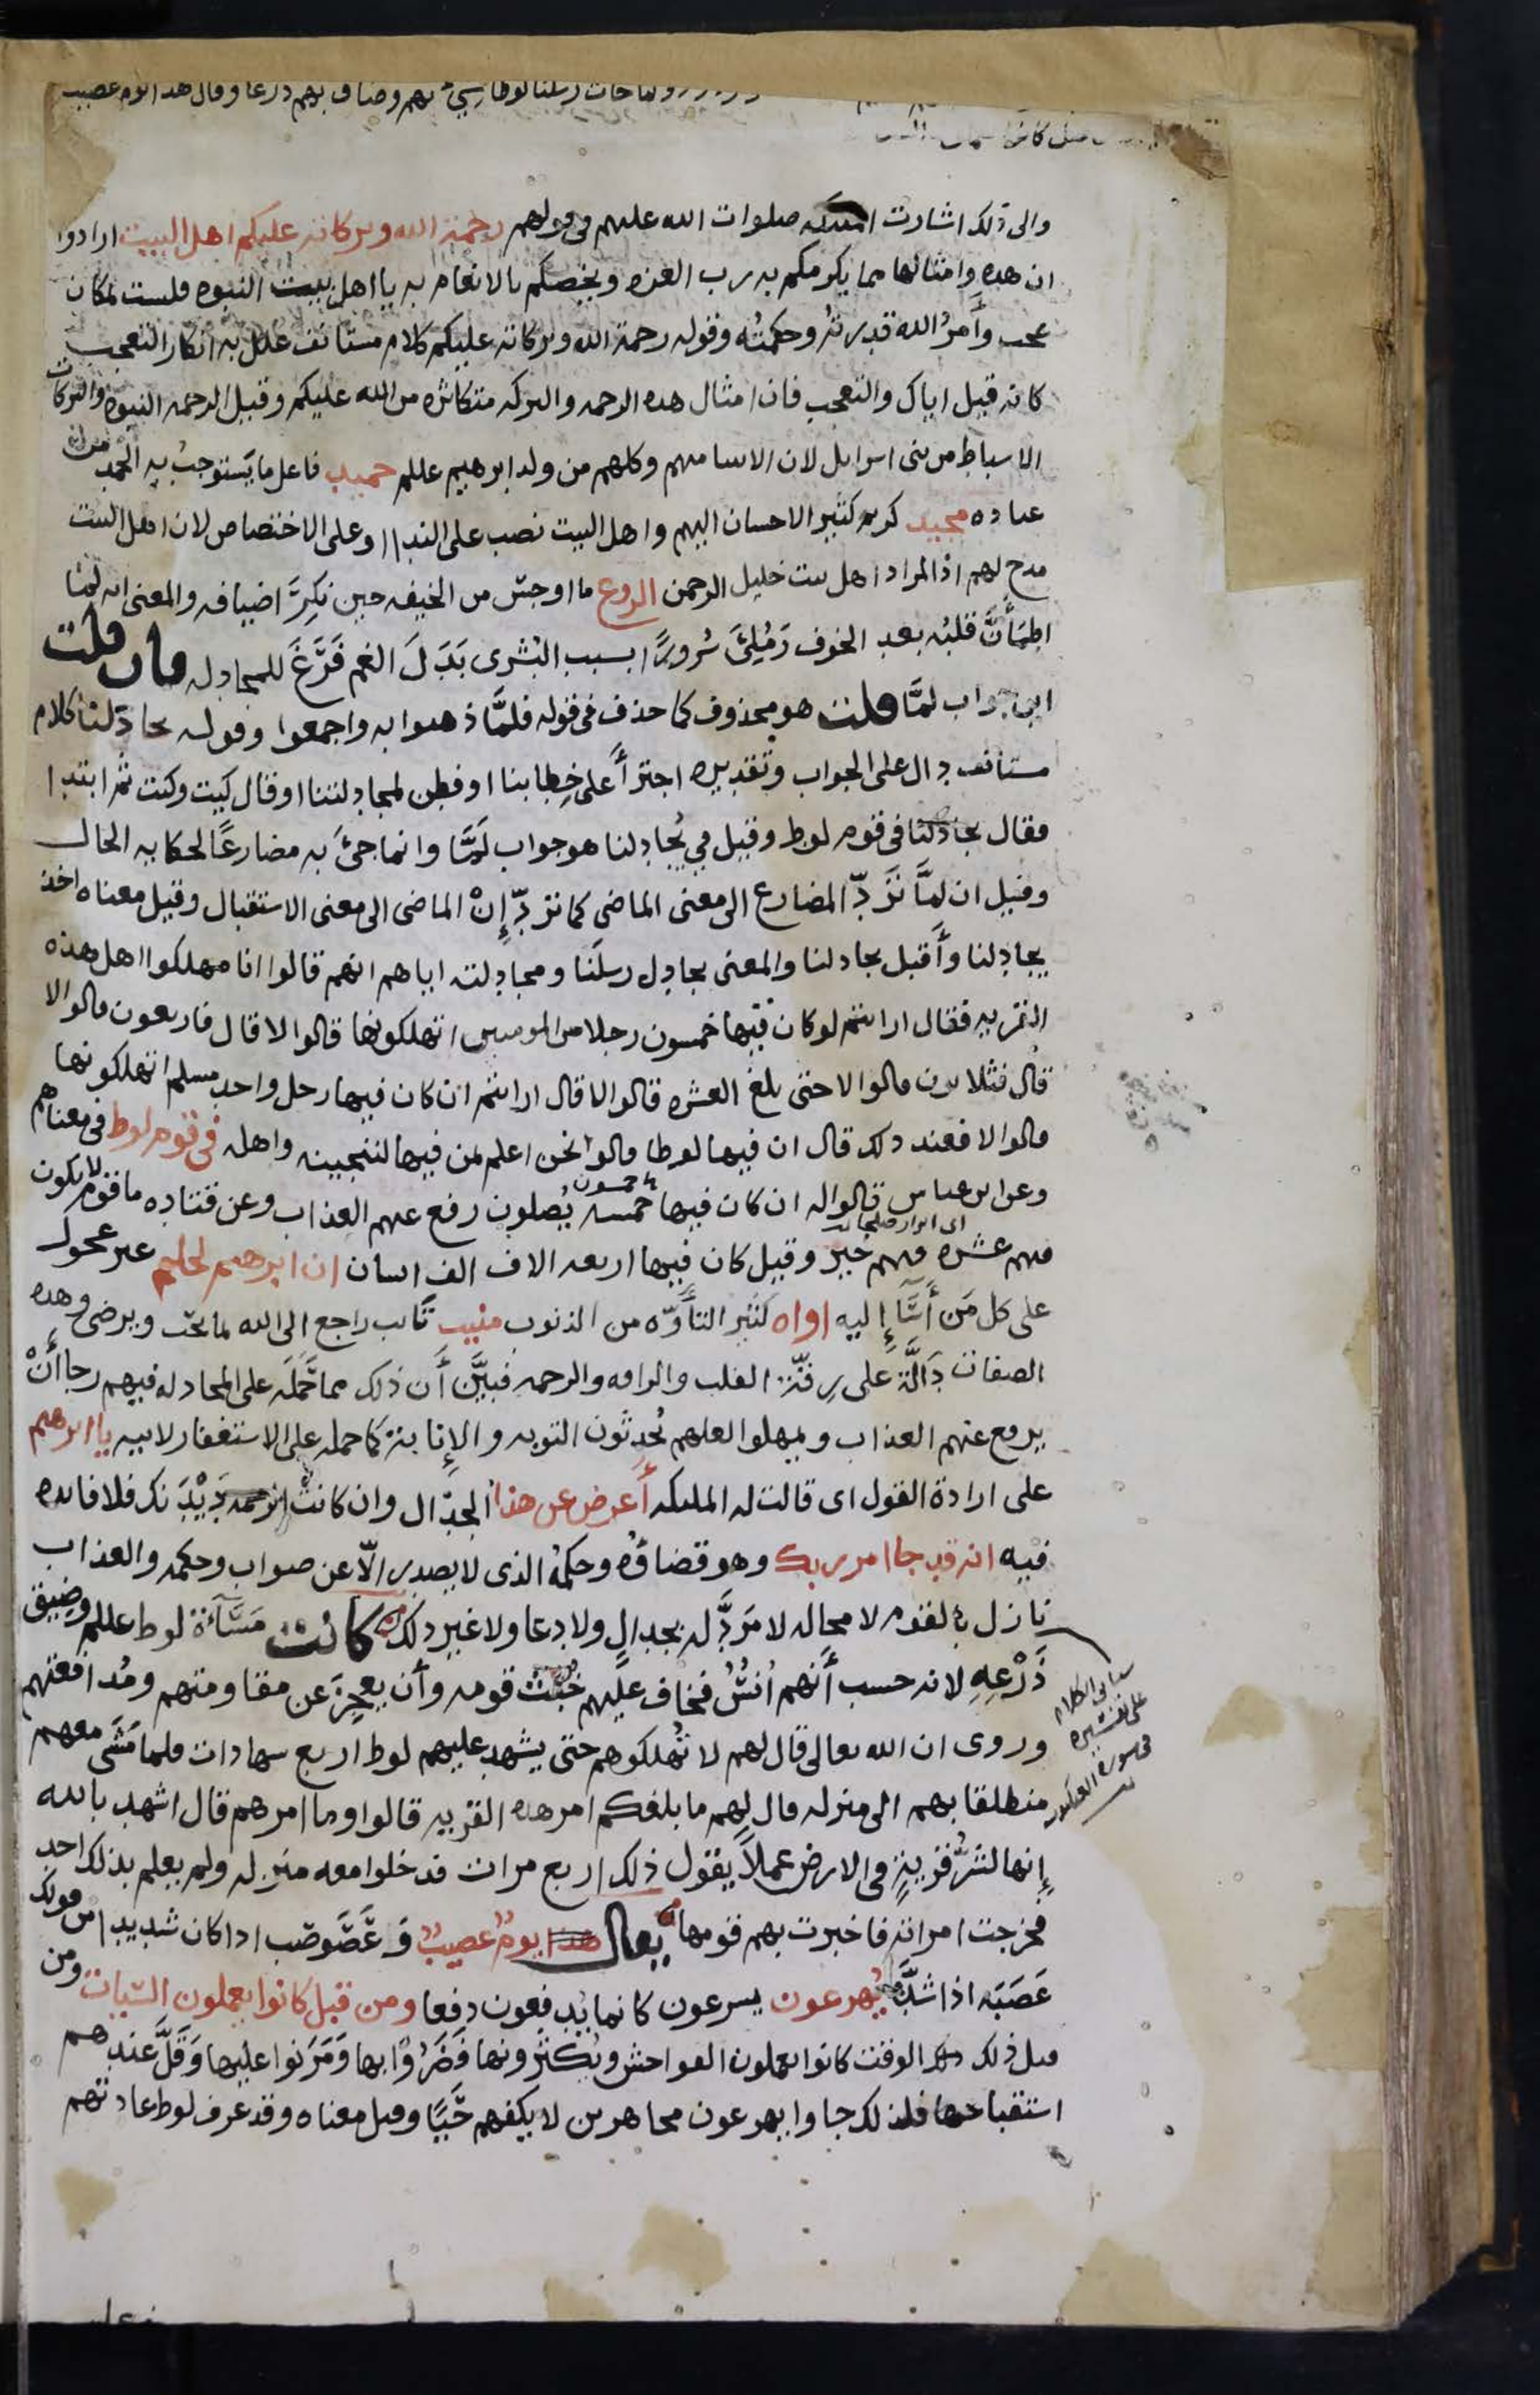 ولما جات رسلنا لوطا سيء بهم وضاق بهم ذرعا وقال هدا يوم عصيب
قبل كانوا
والى ذلك اشارت الملىكه صلوات الله عليهم فى قولهم رحمة الله وبركاته عليكم اهل البيت ارادوا
ان هده وامثالها مما يكرمكم به رب العزه ويخصكم بالانعام به يا اهل بيت النبوه فليست بمكان
عجب وأمرُ الله قدرتُه وحكمتُه وقوله رحمة الله وبركاته عليكم كلام مستانف علل به انكار التعجب
كانه قيل اياك والتعجب فان امثال هده الرحمه والبركه متكاثره من الله عليكم وقيل الرحمه النبوه والبركات
الاسباط من بنى اسرايل لان الانبيا منهم وكلهم من ولد ابرهيم عللم حميد فاعل ما يَستوجبُ به الحمد من
عباده مجيد كريم كثير الاحسان اليهم واهل البيت نصب على الندا او على الاختصاص لان اهل البيت
مدح لهم اذ المراد اهل بيت خليل الرحمن الروع ما اوجسّ من الخيفه حين نكِرَ اضيافه والمعنى انه لمّا
اطمَأنَّ قلبُه بعد الخوف ومُلِئَ سُرورًا بسبب البُشرى بَدَلَ الغم فَرَّغَ للمجادله فان قلت
اين جواب لمَّا قلت هو محذوف كما حذف فى قوله فلمَّا ذهبوا به واجمعوا وقوله يجادلنا كلام
مستانف دال على الجواب وتقديره اجترأ على خِطابنا او فطن لمجادلتنا او قال كيت وكيت ثم ابتدا
فقال يجادلنا فى قوم لوط وقيل في يُجادلنا هو جواب لَمَّا وانما جئَ به مضارعًا لحكايه الحال
وقيل ان لمَّا تَردّ المضارع الى معنى الماضى كما تردّ إِنْ الماضى الى معنى الاستقبال وقيل معناه اخذ
يجادلنا وأقبل يجادلنا والمعنى يجادل رسلَنا ومجادلته اياهم انهم قالوا انا مهلكوا اهل هذه
القريه فقال ارايتم لو كان فيها خمسون رجلا من المومنين اتهلكونها قالوا لا قال فاربعون قالوا لا
قال فثلاىون قالوا لا حتى بلغ العشره قالوا لا قال ارايتم ان كان فيها رجل واحد مسلم اتهلكونها
قالوا لا فعند دلك قال ان فيها لوطا قالوا نحن اعلم بمن فيها لننجينه واهله فى قوم لوط فى معناهم
وعن ابن عباس قالوا له ان كان فيها خمسه يُصلون رفع عنهم العذاب وعن قتاده ما قوم لا يكون
فيهم عشره فيهم خير وقيل كان فيها اربعه الاف الف انسان ان ابرهيم لحليم غير عجول
على كل مَن أَسَآ إليه اواه كثير التأوّه من الذنوب منيب تايب راجع الى الله بما يحبّ ويرضى وهده
الصفات دَالَّة على رِقّة القلب والرافه والرحمه فبيَّن أَن ذلك مما حَمَلَه على المجادله فيهم رجا أنْ
يرفع عنهم العذاب ويمهلوا لعلهم يُحدثون التوبه والإِنابة كما حمله على الاستغفار لابيه يا ابرهيم
على ارادة القول اى قالت له الملىكه أَعرض عن هذا الجدال وان كانت الرحمه دَيْدَنَك فلا فايده
فيه انه قد جا امر ربك وهو قضاؤه وحكمُه الذى لا يصدر الّا عن صواب وحكمه والعذاب
نازل بالقوم لا محاله لا مَردَّ له بجدالٍ ولا دعا ولا غير دلك كانت مَسَآءَة لوط عللم وضيق
ذَرْعِهِ لانه حسب أَنهم اُنسٌ فخاف عليهم خُبْثَ قومه وأن يعجِزَ عن مقاومتهم ومُدافعتهم
وروى ان الله تعالى قال لهم لا تُهلكوهم حتى يشهد عليهم لوط اربع شهادات فلما مَشَى معهم
منطلقا بهم الى منزله قال لهم ما بلغكم امر هده القريه قالوا وما امرهم قال اشهد بالله
إِنها لشَرُّ قريةٍ فى الارض عملاً يقول ذلك اربع مرات فدخلوا معه منزله ولم يعلم بذلك احد
فخرجت امراته فاخبرت بهم قومها يقال هذا يومٌ عصيبٌ وَعَصَوصَب ادا كان شديدا من قولك
عَصَبَه اذا شدَّه يُهرعون يسرعون كانما يُدفعون دفعا ومن قبل كانوا يعملون السّيات ومن
قبل ذلك الوقت كانوا يعملون الفواحش ويُكثرونها فَضَرُوْا بها ومَرَنوا عليها وقَلَّ عندهم
استقباحها فلذلك جاوا يهرعون مجاهرين لا يكفهم حَيَا وقيل معناه وقد عرف لوط عادتهم